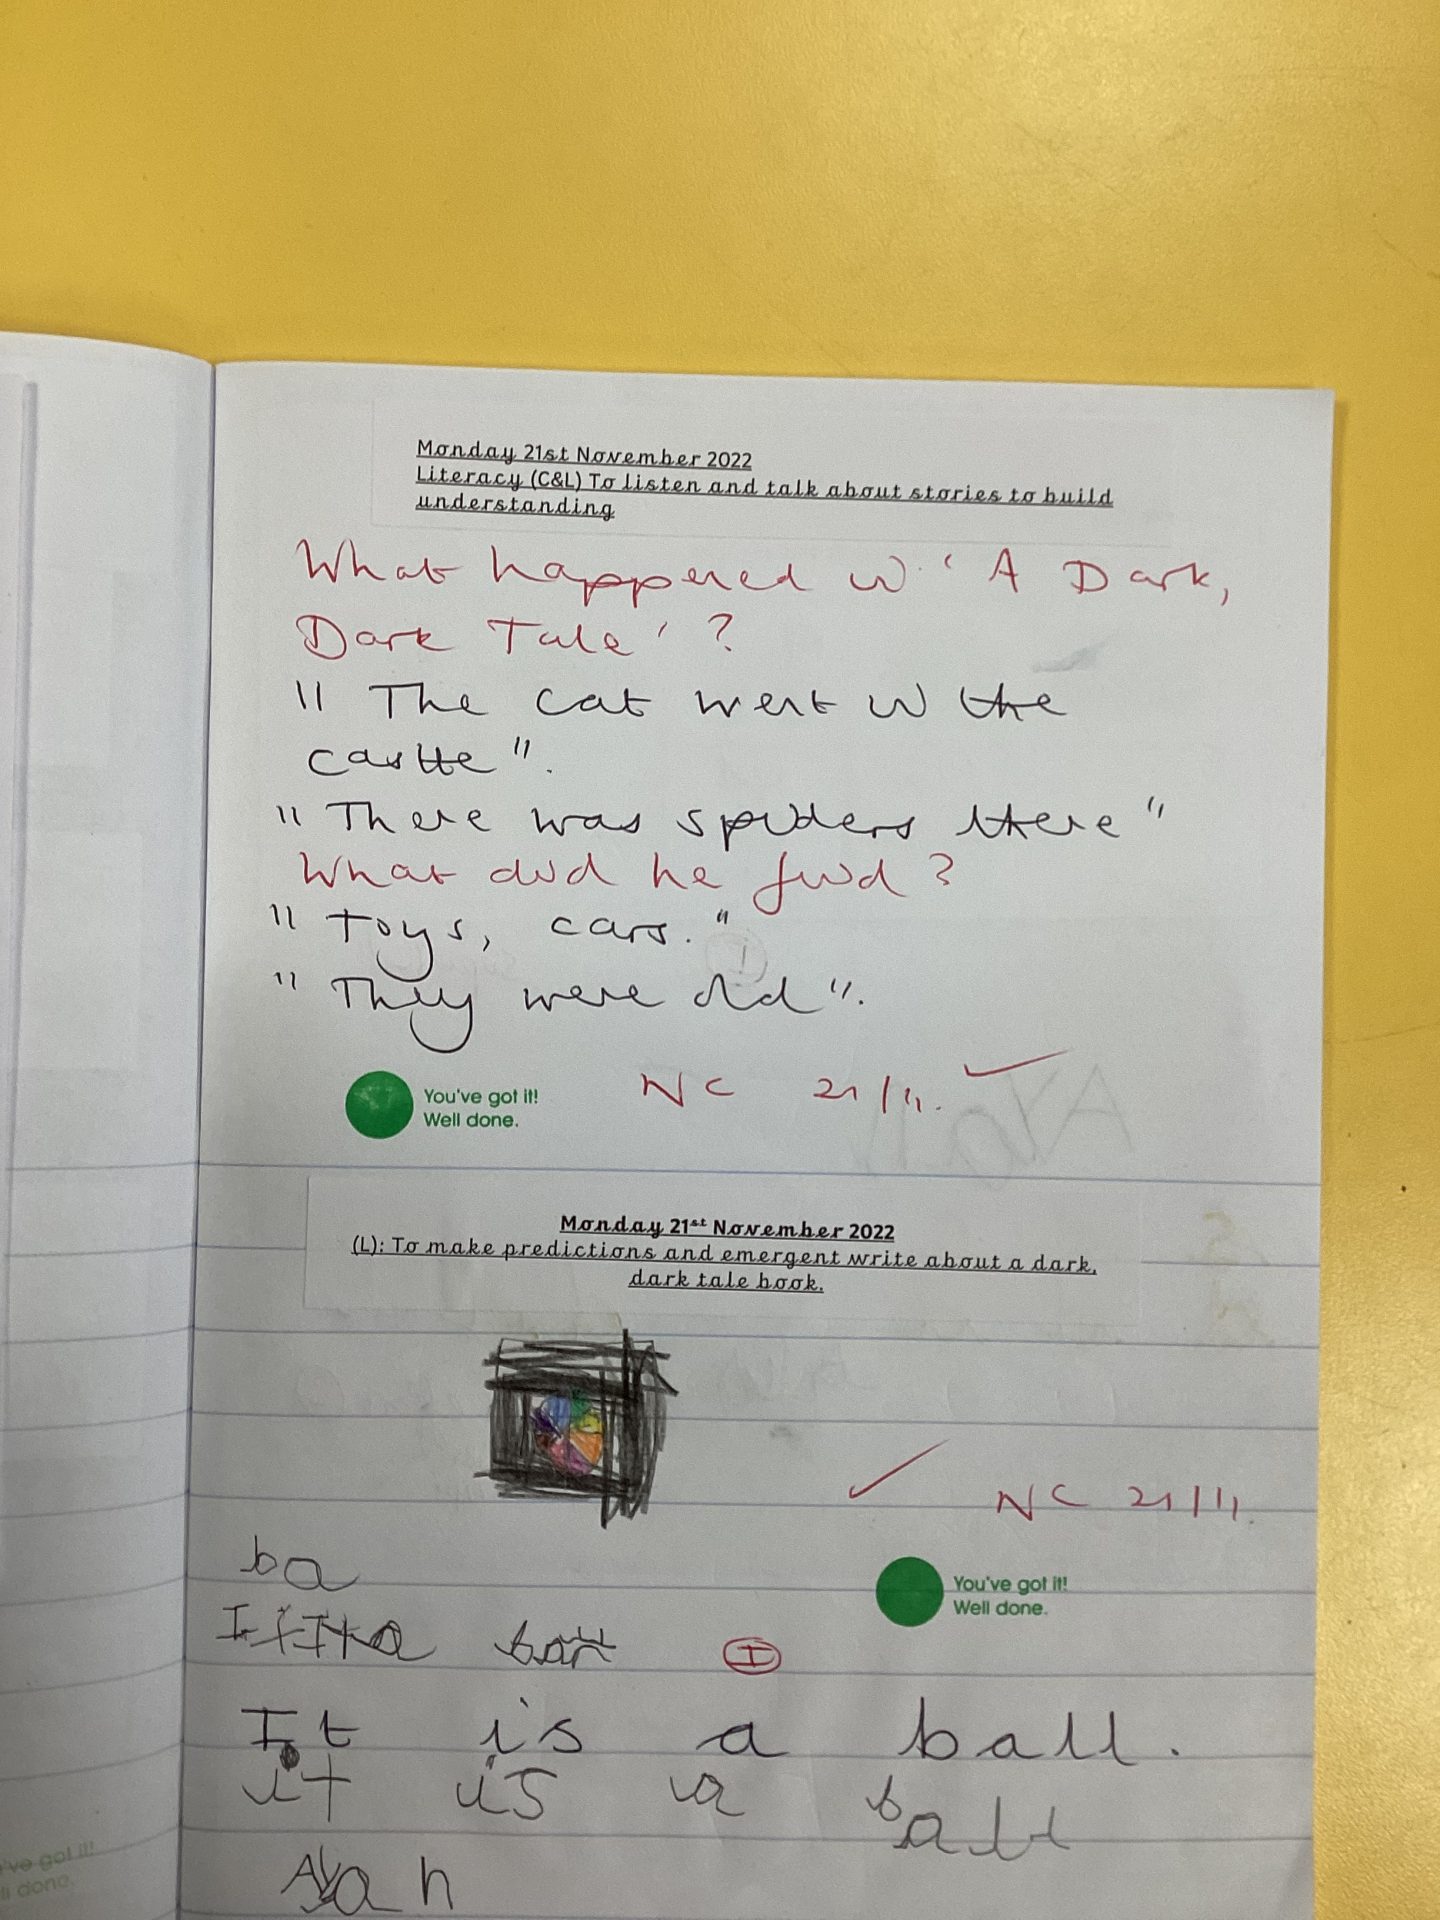 Monday 21st November 2022
Literacy (C&L) To listen and talk about stories to build
understanding
What happened in 'A Dark,
Dark Tale'?
"The cat went in the
castle".
"There was spiders there"
What did he find?
"Toys, cars."
"They were old".
You've got it!
Well done.
NC 21/11.
Monday 21st November 2022
(L): To make predictions and emergent write about a dark,
dark tale book.
NC 21/11.
ba
You've got it!
Well done.
ball
I
It is a ball.
it is a ball
Ayah
've got it!
ll done.